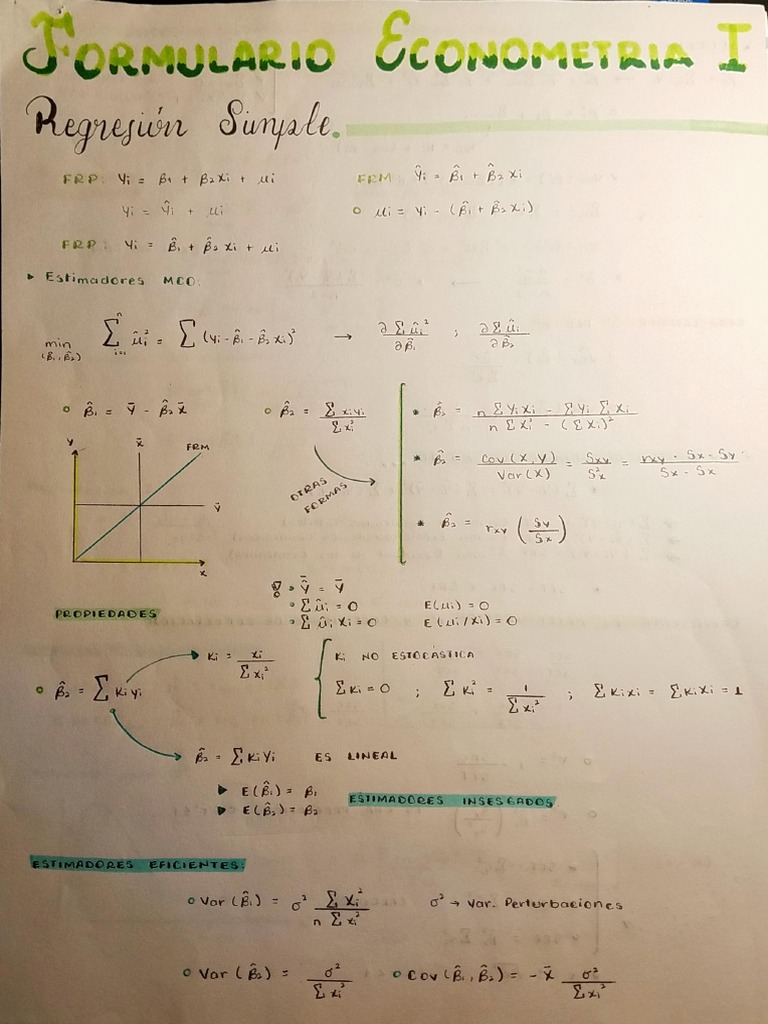 FORMULARIO ECONOMETRIA I
Regresión Simple.
FRP: Yi = β1 + β2Xi + μi
FRM: Ŷi = β̂1 + β̂2 Xi
Yi = Ŷi + μi
○ μi = Yi - (β̂1 + β̂2 Xi)
FRP: Yi = β̂1 + β̂2 Xi + μi
▸ Estimadores MCO:
min (β̂1, β̂2) ∑ⁿi=1 μ̂i² = ∑ (Yi - β̂1 - β̂2 Xi)² → ∂∑μ̂i² / ∂β̂1 ; ∂∑μ̂i / ∂β̂2
○ β̂1 = Ȳ - β̂2 X̄
○ β̂2 = ∑ xiyi / ∑ xi²
OTRAS FORMAS
* β̂2 = n ∑ YiXi - ∑Yi ∑ Xi / n ∑ Xi² - (∑Xi)²
* β̂2 = Cov(X,Y) / Var(X) = Sxy / S²x = rxy · Sx · Sy / Sx · Sx
* β̂2 = rxy (Sy / Sx)
Y X̄ FRM
Ȳ
X
Ŷ̄ = Ȳ
∑ μ̂i = 0 E(μi) = 0
∑ μ̂i Xi = 0 E(μi/Xi) = 0
PROPIEDADES
○ β̂2 = ∑ Ki yi
Ki = xi / ∑ xi²
Ki NO ESTOCASTICA
∑ Ki = 0 ; ∑ Ki² = 1 / ∑ xi² ; ∑ Kixi = ∑ KiXi = 1
β̂2 = ∑ Ki Yi ES LINEAL
▸ E(β̂1) = β1
▸ E(β̂2) = β2
ESTIMADORES INSESGADOS
ESTIMADORES EFICIENTES:
○ Var (β̂1) = σ² ∑ Xi² / n ∑ xi²
σ² → Var. Perturbaciones
○ Var (β̂2) = σ² / ∑ xi²
○ Cov (β̂1, β̂2) = - X̄ σ² / ∑ xi²